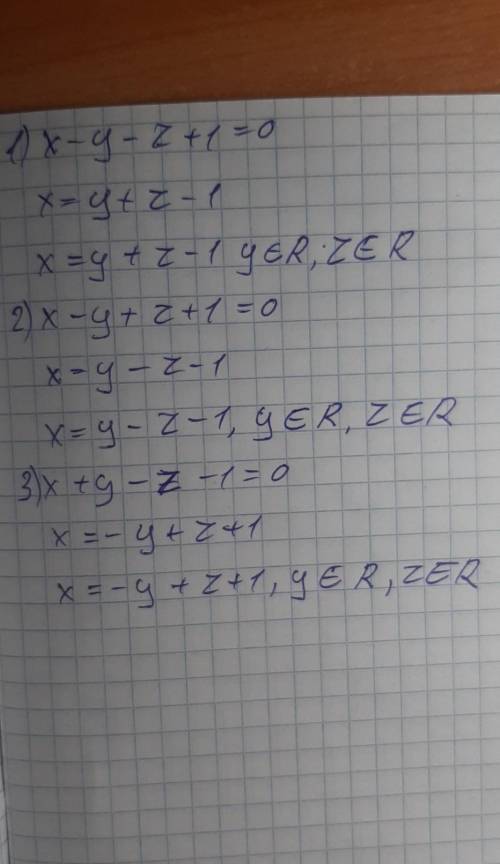 1) x - y - z + 1 = 0
x = y + z - 1
x = y + z - 1 y ∈ R, z ∈ R
2) x - y + z + 1 = 0
x = y - z - 1
x = y - z - 1, y ∈ R, z ∈ R
3) x + y - z - 1 = 0
x = - y + z + 1
x = - y + z + 1, y ∈ R, z ∈ R